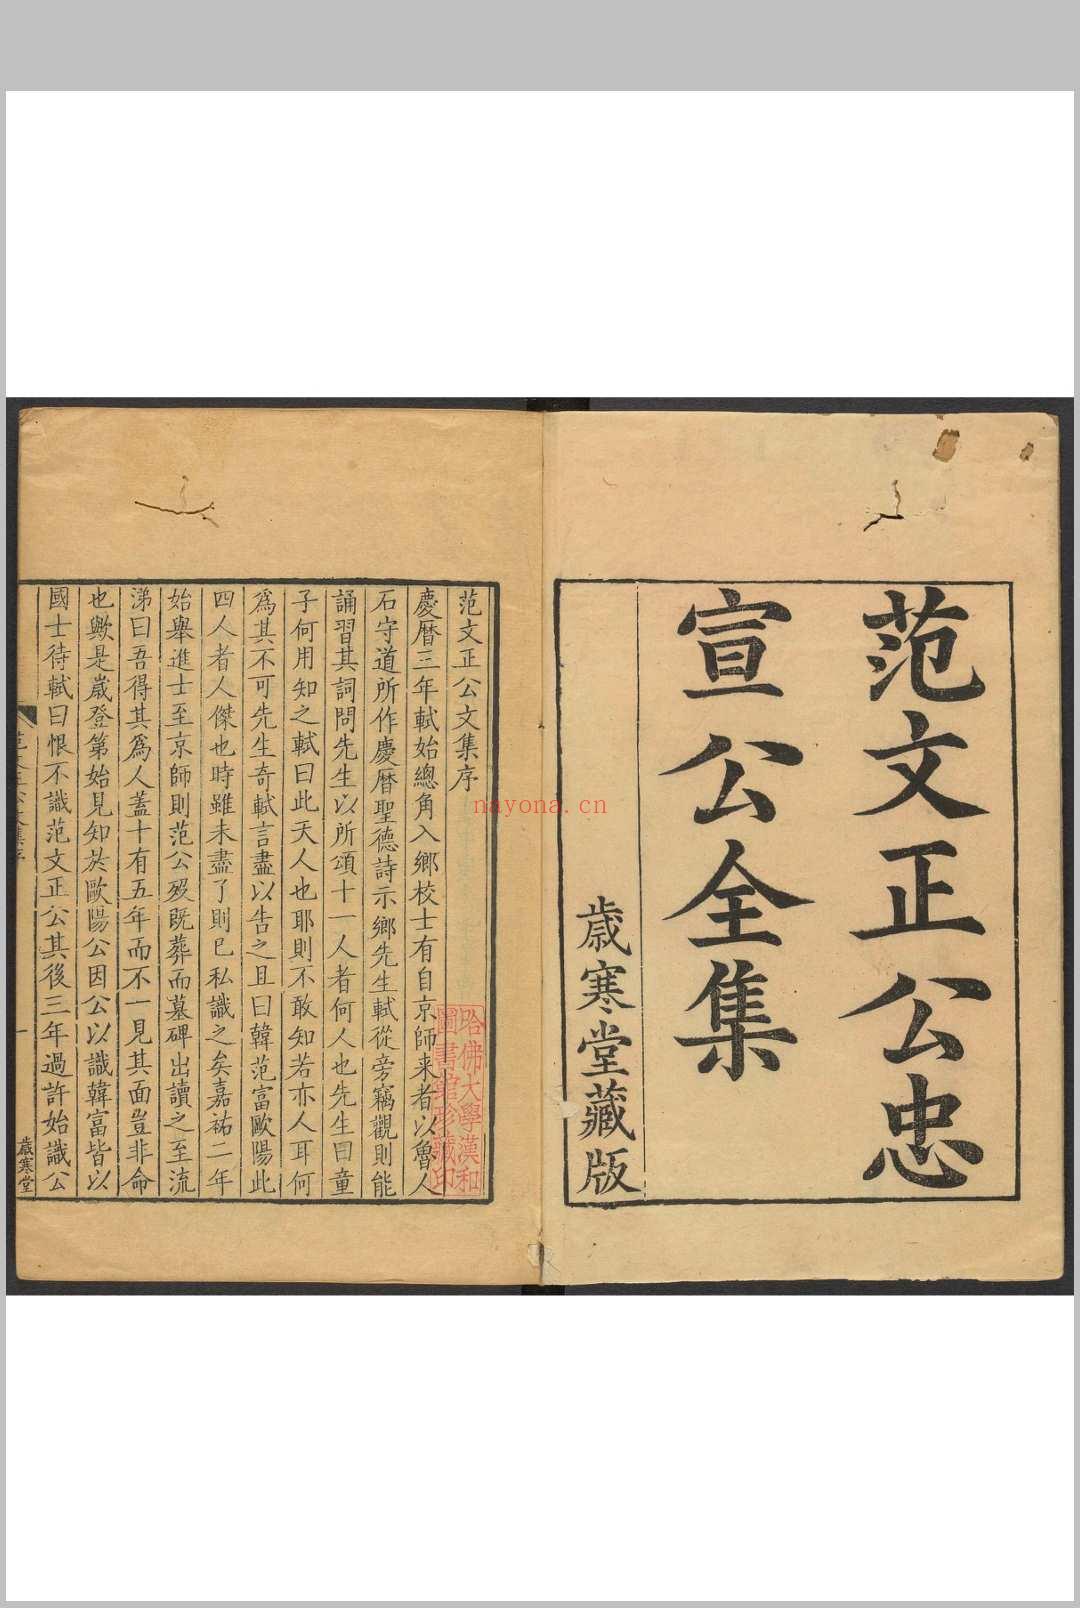 范文正公忠
宣公全集
歲寒堂藏版
范文正公文集序
慶曆三年軾始總角入鄉校士有自京師来者以魯人
石守道所作慶曆聖德詩示鄉先生軾從旁竊觀則能
誦習其詞問先生以所頌十一人者何人也先生曰童
子何用知之軾曰此天人也耶則不敢知若亦人耳何
爲其不可先生奇軾言盡以告之且曰韓范富歐陽此
四人者人傑也時雖未盡了則已私識之矣嘉祐二年
始舉進士至京師則范公殁既葬而墓碑出讀之至流
涕曰吾得其爲人蓋十有五年而不一見其面豈非命
也歟是歲登第始見知於歐陽公因公以識韓富皆以
國士待軾曰恨不識范文正公其後三年過許始識公
歲寒堂
哈佛大學漢和
圖書館珍藏印
nayona.cn